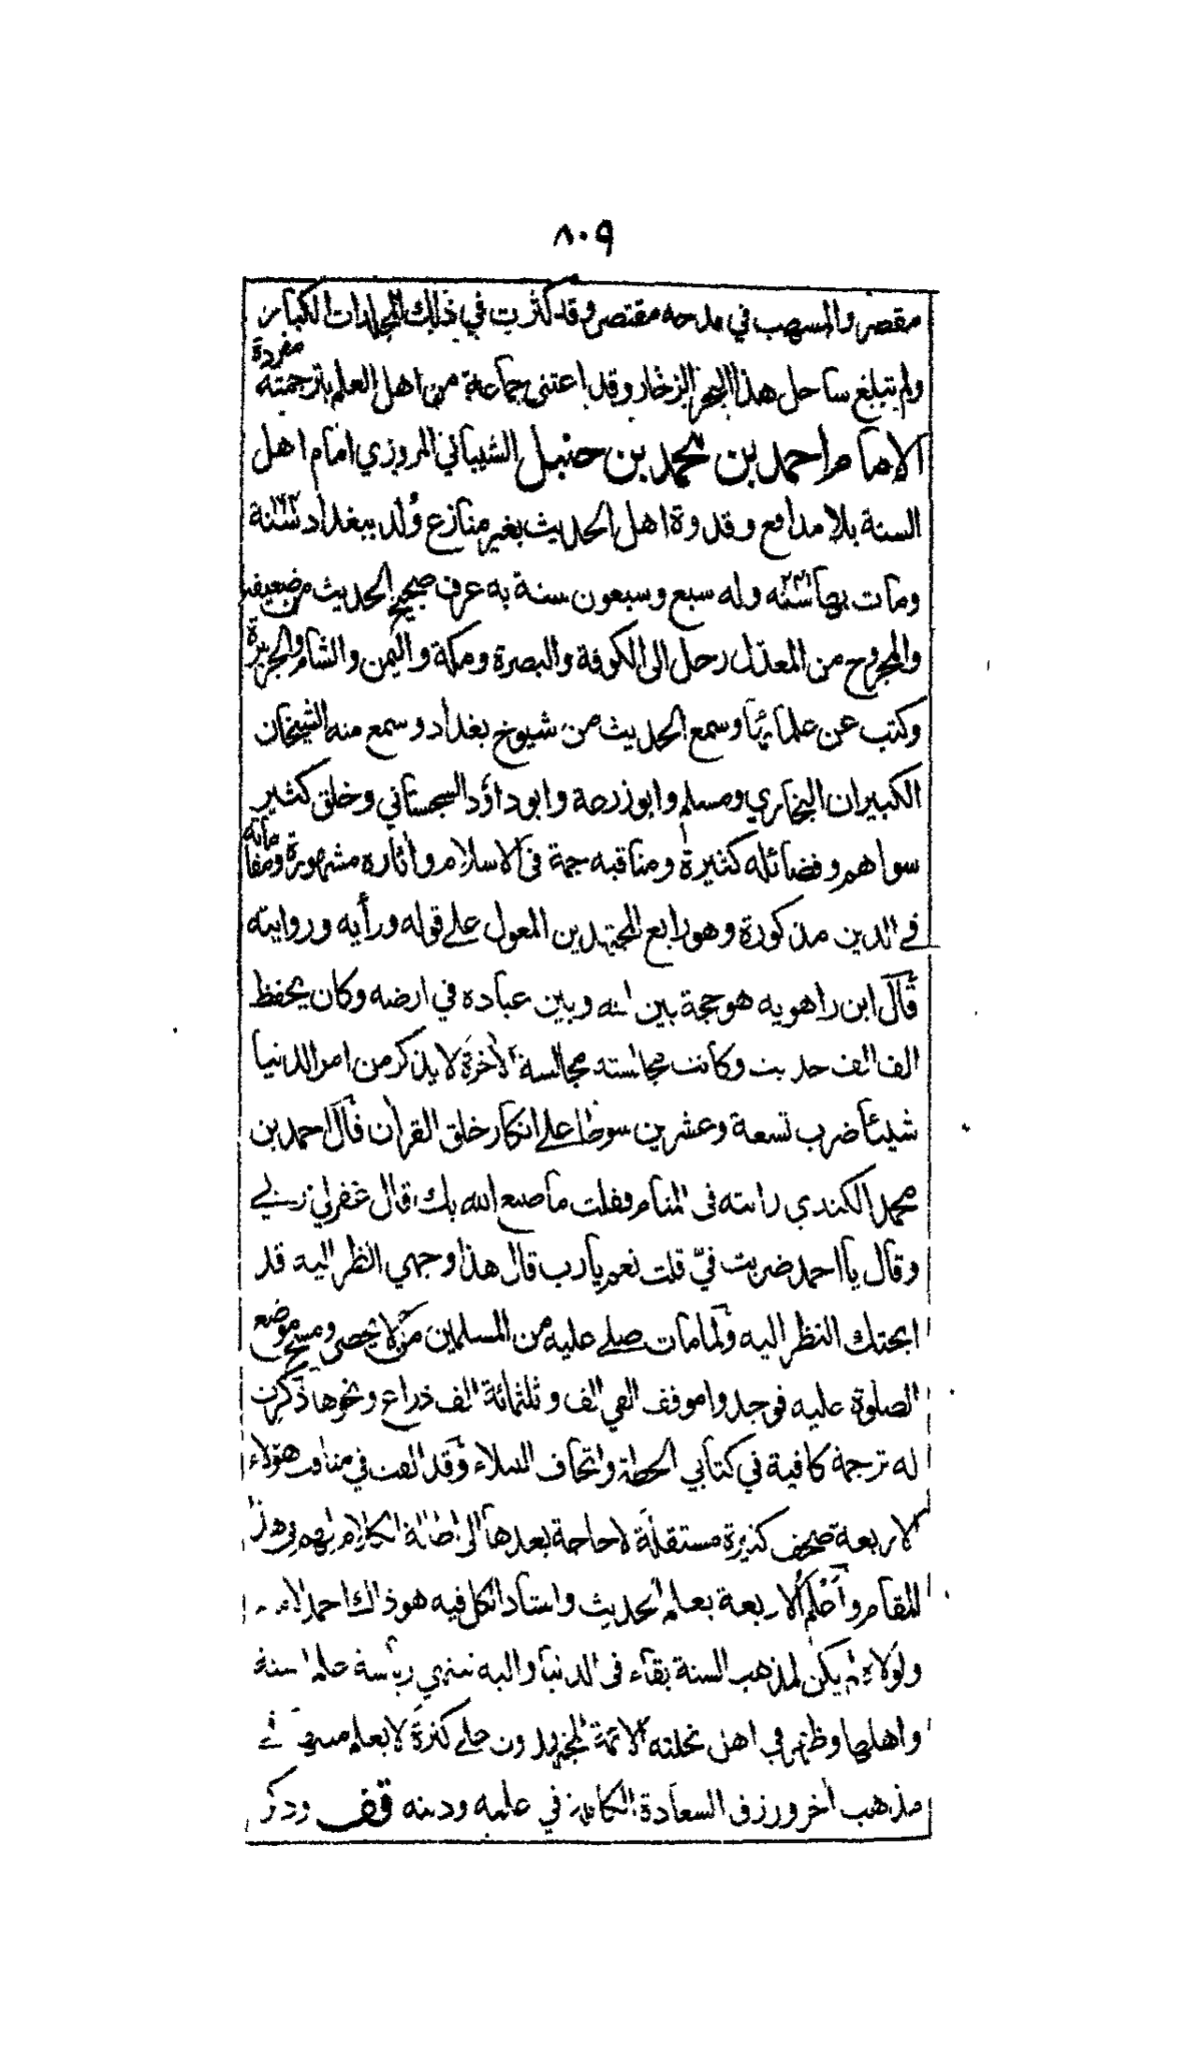 ٨٠٩
مقصر والمسهب في مدحه مقتصر وقد كثرت في ذلك المجلدات الكبار
ولم تبلغ ساحل هذا البحر الزخار وقد اعتنى جماعة من اهل العلم بترجمته مفردة
الامام احمد بن محمد بن حنبل الشيباني المروزي امام اهل
السنة بلا مدافع وقدوة اهل الحديث بغير منازع وُلد ببغداد سنة
ومات بها سنة وله سبع وسبعون سنة به عرف صحيح الحديث من ضعيفه
والمجروح من المعدّل رحل الى الكوفة والبصرة ومكة واليمن والشام والجزيرة
وكتب عن علمائها وسمع الحديث من شيوخ بغداد وسمع منه الشيخان
الكبيران البخاري ومسلم وابو زرعة وابو داؤد السجستاني وخلق كثير
سواهم وفضائله كثيرة ومناقبه جمة في الاسلام واثاره مشهورة ومقاماته
في الدين مذكورة وهو رابع المجتهدين المعول على قوله ورأيه وروايته
قال ابن راهويه هو حجة بين الله وبين عباده في ارضه وكان يحفظ
الف الف حديث وكانت مجالسته مجالسة الآخرة لا يذكر من امر الدنيا
شيئا ضرب تسعة وعشرين سوطا على انكار خلق القران قال احمد بن
محمد الكندي رايته فى المنام فقلت ما صنع الله بك قال غفر لي ربي
وقال يا احمد ضربت فيّ قلت نعم يا رب قال هذا وجهي انظر اليه قد
ابحتك النظر اليه ولما مات صلى عليه من المسلمين من لا يحصى ومسح موضع
الصلوة عليه فوجدوا موقف الفي الف وثلثمائة الف ذراع ونحوها ذكرت
له ترجمة كافية في كتابي الحطة واتحاف النبلاء وقد الفت في مناقب هؤلاء
الاربعة صحف كثيرة مستقلة لا حاجة بعدها الى اطالة الكلام بهم في هذا
المقام وأعلم الاربعة بعلم الحديث واستاد الكل فيه هو ذاك احمد
ولولاه لم يكن لمذهب السنة بقاء فى الدنيا واليه تنتهي رياسة علم السنة
واهلها وظهر في اهل نحلته الائمة المجتهدون على كثرة لا يعلم مثلها في
مذهب اخر ورزق السعادة الكاملة في علمه ودينه قف وذكر